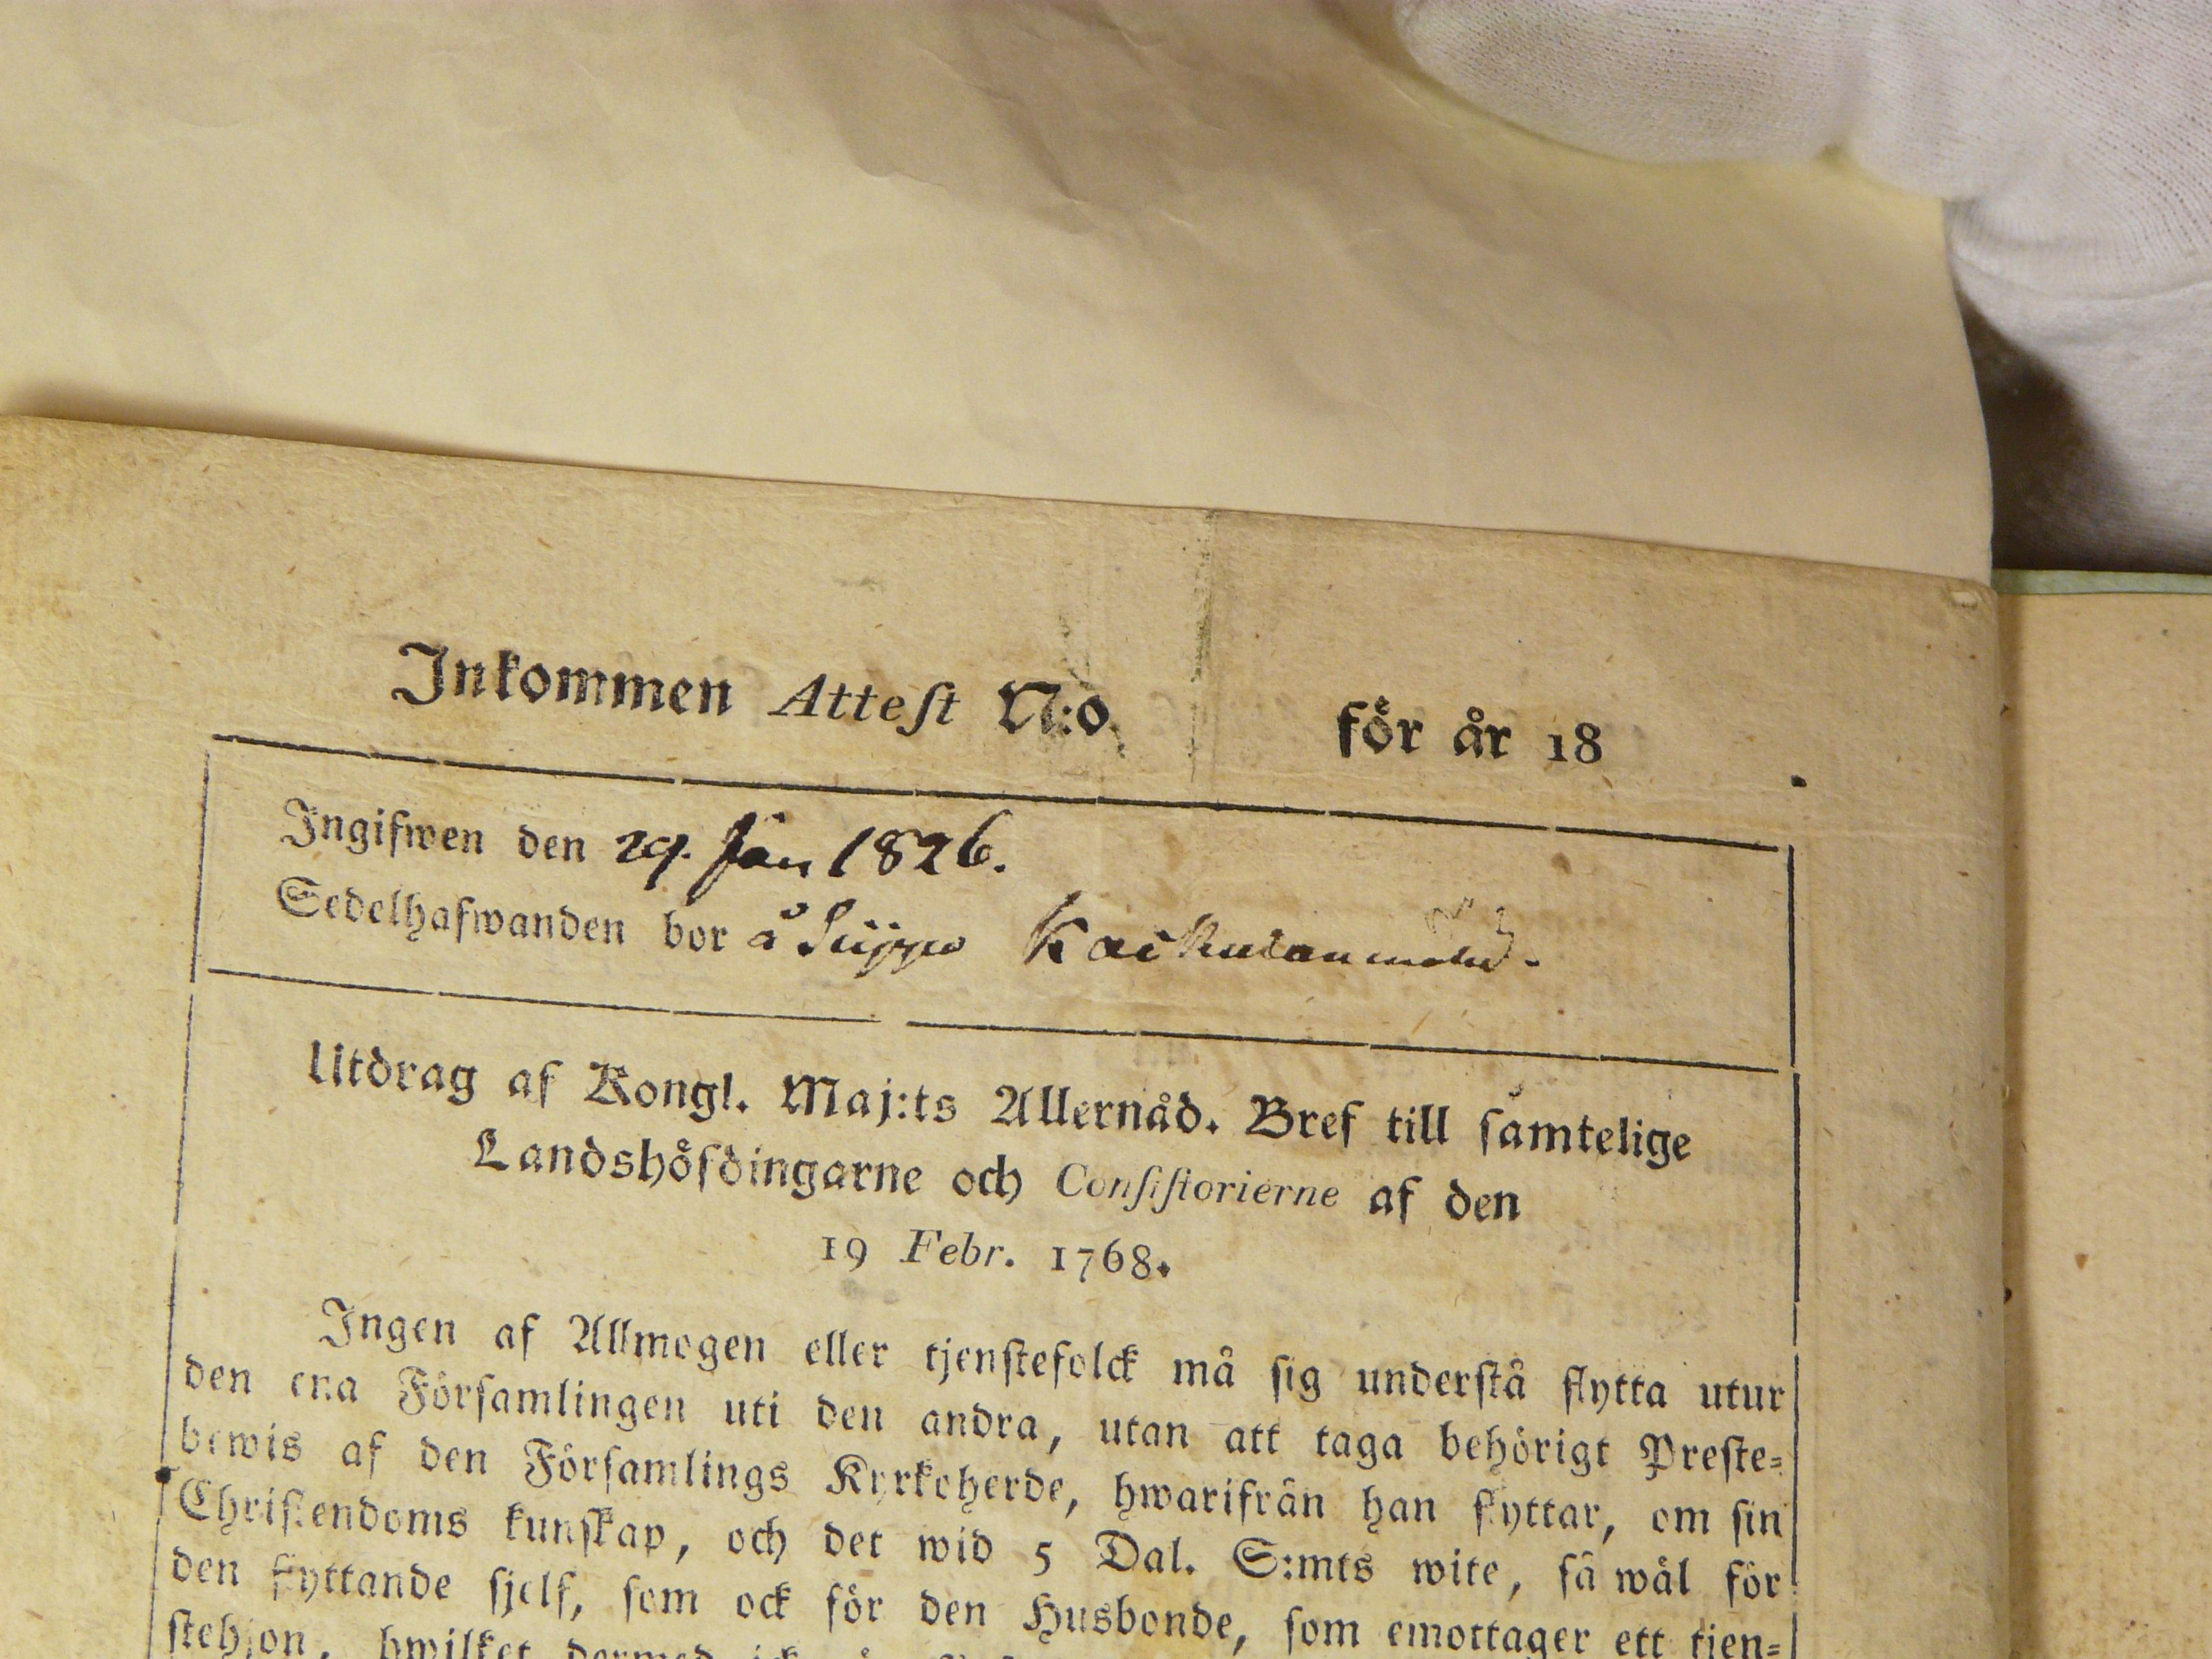 Inkommen Attest N:o för år 18 .
Ingifwen den 29. Jan 1826.
Sedelhafwanden bor å
Utdrag af Kongl. Maj:ts Allernåd. Bref till samtelige
Landshöfdingarne och Consistorierne af den
19 Febr. 1768.
Ingen af Allmogen eller tjenstefolck må sig understå flytta utur
den ena Församlingen uti den andra, utan att taga behörigt Preste-
bewis af den Församlings Kyrkoherde, hwarifrån han flyttar, om sin
Christendoms kunskap, och det wid 5 Dal. S:mts wite, så wäl för
den flyttande sjelf, som ock för den Husbonde, som emottager ett tjen-
stehjon, hwilket